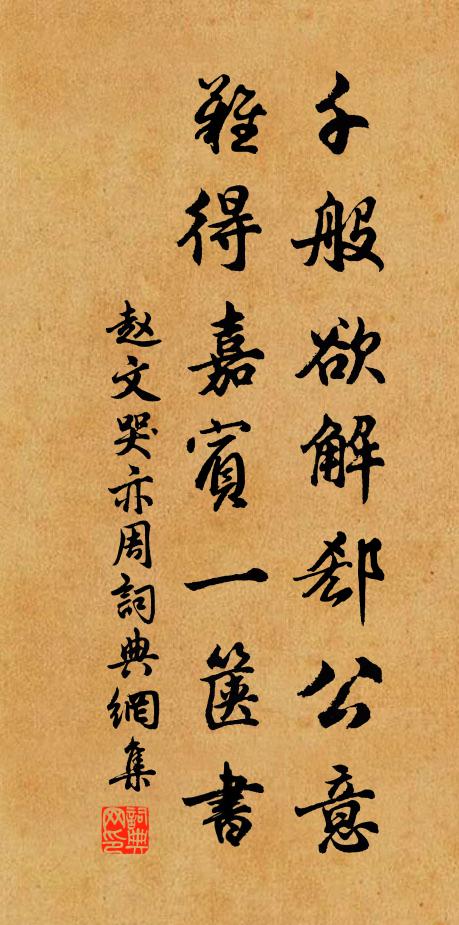 千般欲解郄公意
難得嘉賓一篋書
赵文哭亦周詞典網集
詞典网印